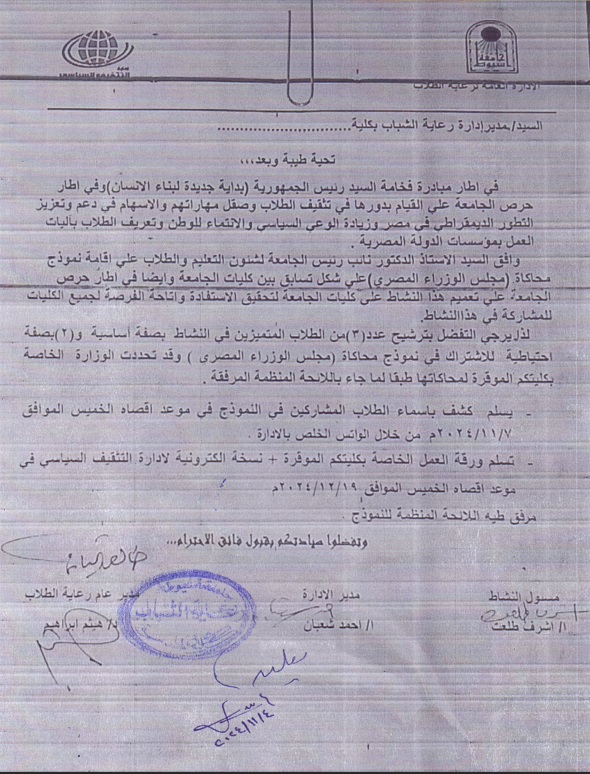 جامعة أسيوط
التثقيف السياسي
الادارة العامة لرعاية الطلاب
السيد/مدير إدارة رعاية الشباب بكلية..............................
تحية طيبة وبعد،،،
في اطار مبادرة فخامة السيد رئيس الجمهورية (بداية جديدة لبناء الانسان)وفي اطار
حرص الجامعة علي القيام بدورها في تثقيف الطلاب وصقل مهاراتهم والاسهام في دعم وتعزيز
التطور الديمقراطي في مصر وزيادة الوعي السياسي والانتماء للوطن وتعريف الطلاب بآليات
العمل بمؤسسات الدولة المصرية .
وافق السيد الاستاذ الدكتور نائب رئيس الجامعة لشئون التعليم والطلاب علي اقامة نموذج
محاكاة (مجلس الوزراء المصري)علي شكل تسابق بين كليات الجامعة وايضا في اطار حرص
الجامعة علي تعميم هذا النشاط علي كليات الجامعة لتحقيق الاستفادة واتاحة الفرصة لجميع الكليات
للمشاركة في هذاالنشاط.
لذايرجي التفضل بترشيح عدد(٣)من الطلاب المتميزين في النشاط بصفة أساسية و(٢)بصفة
احتياطية للاشتراك في نموذج محاكاة (مجلس الوزراء المصري ) وقد تحددت الوزارة الخاصة
بكليتكم الموقرة لمحاكاتها طبقا لما جاء باللائحة المنظمة المرفقة .
- يسلم كشف باسماء الطلاب المشاركين في النموذج في موعد اقصاه الخميس الموافق
٢٠٢٤/١١/٧م من خلال الواتس الخلص بالادارة .
- تسلم ورقة العمل الخاصة بكليتكم الموقرة + نسخة الكترونية لادارة التثقيف السياسي في
موعد اقصاه الخميس الموافق ٢٠٢٤/١٢/١٩م
مرفق طيه اللائحة المنظمة للنموذج .
وتفضلوا سيادتكم بقبول فائق الاحترام...
مسئول النشاط
مدير الادارة
مدير عام رعاية الطلاب
ا/ اشرف طلعت
ا/ احمد شعبان
د/ هيثم ابراهيم
٢٠٢٤/١١/٤